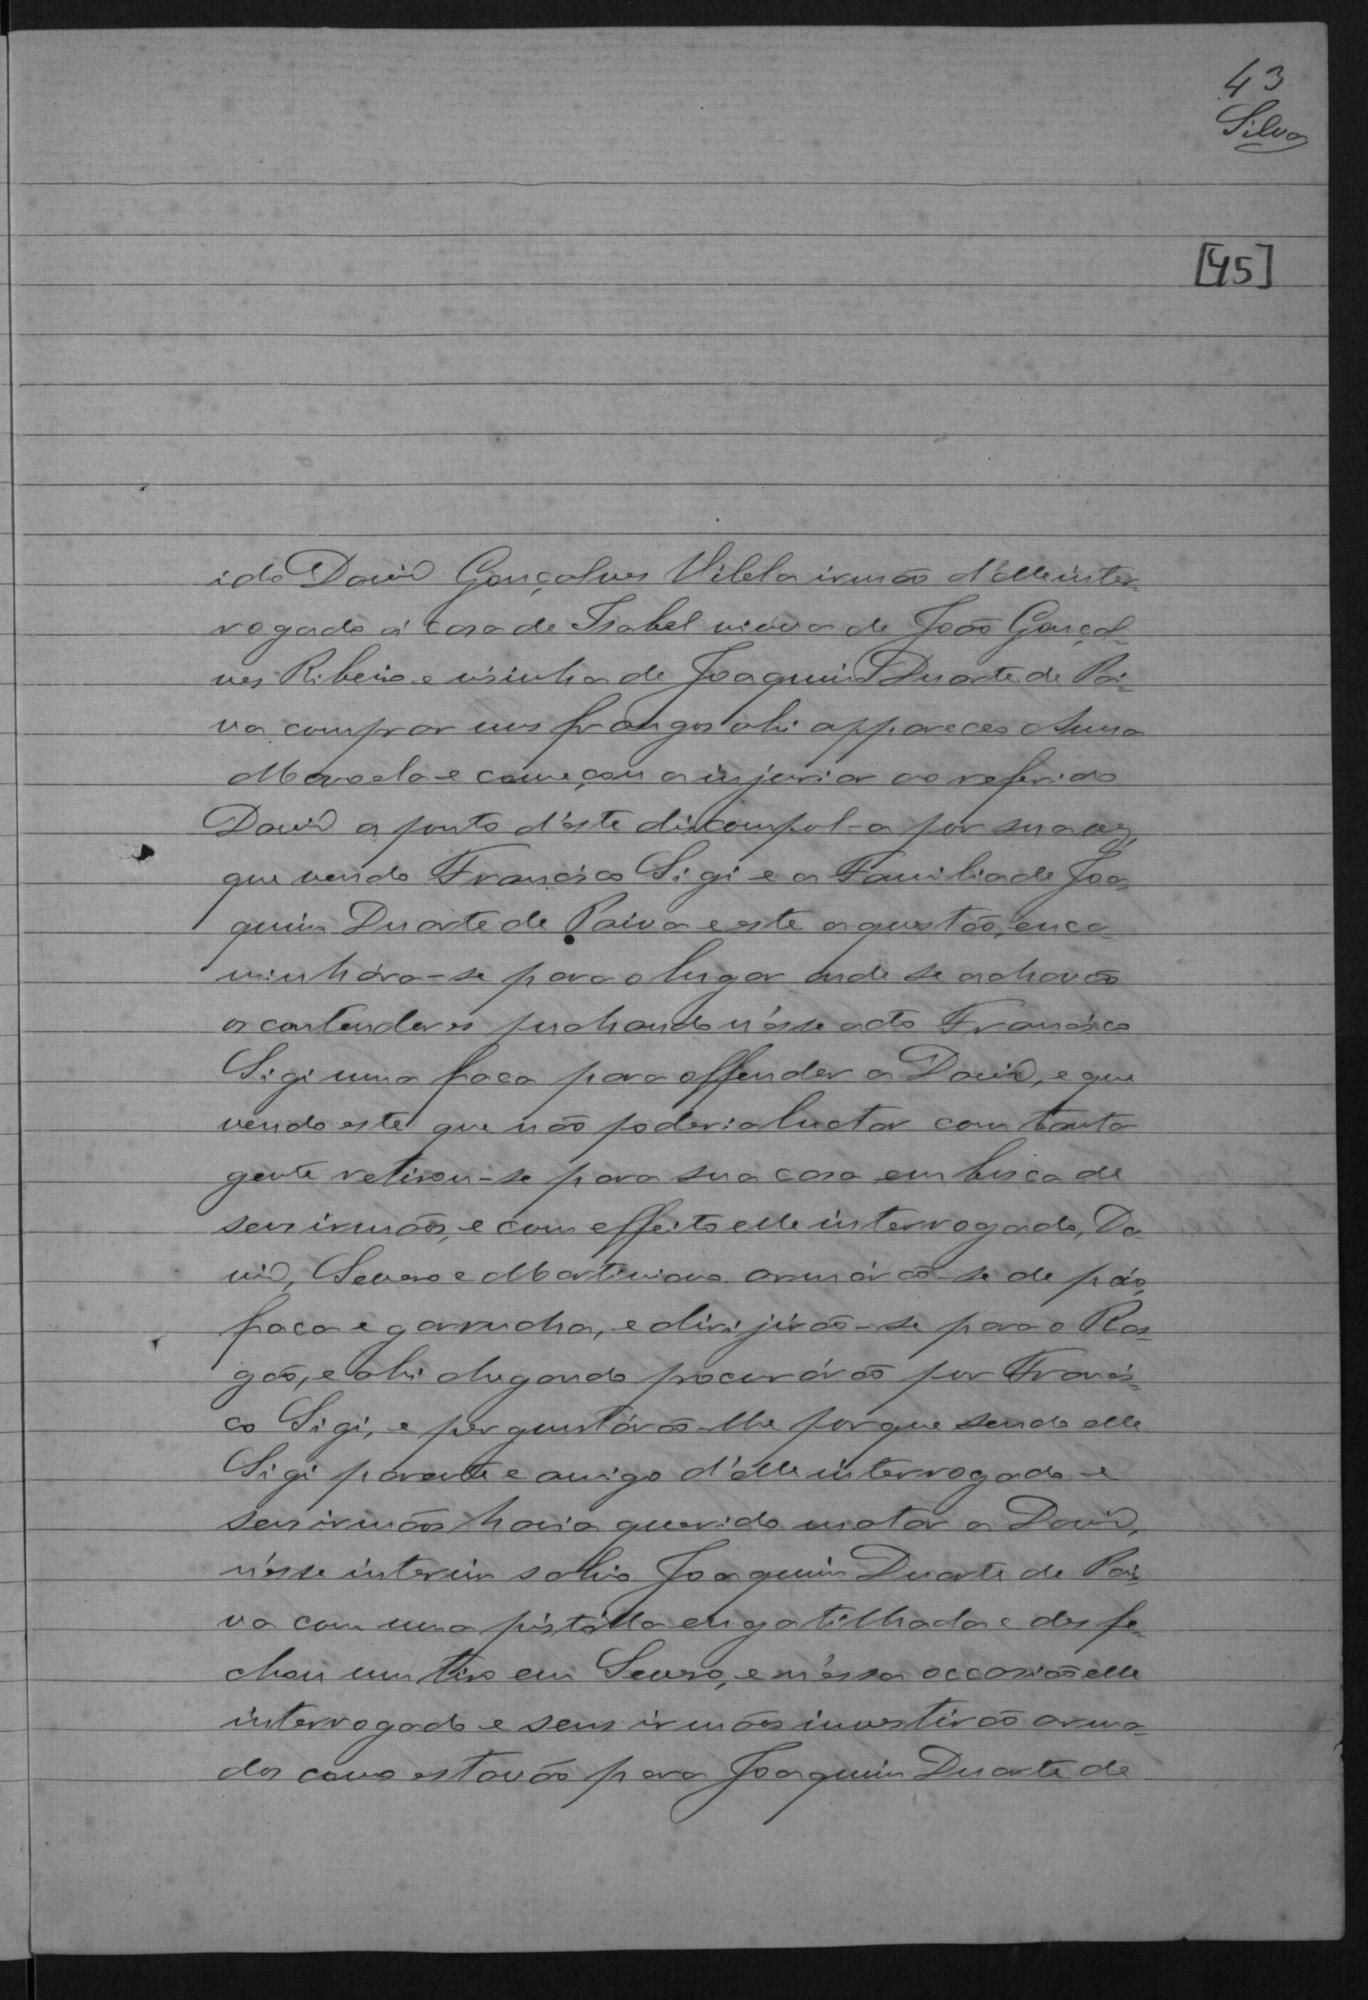 43
Silva
[45]
ido David Gonçalves Vilela irmão d'elle inter-
rogado á casa de Isabel viuva de João Gonçal-
ves Ribeiro e visinha de Joaquim Duarte de Pai-
va comprar uns frangos ahi appareceo Anna
e começou a injuriar ao referido
David a ponto d'éste discompol-a por sua vez,
que vendo Francisco Sigi e a Familia de Joa-
quim Duarte de Paiva e este a questão, enca-
minhára-se para o lugar onde se achavão
os contendores puchando n'ésse acto Francisco
Sigi uma faca para offender a David, e que
vendo este que não poderia luctar com tanta
gente retirou-se para sua casa em busca de
seus irmãos, e com effeito elle interrogado, Da
vid, Severo e Martiniano armárão-se de páo,
faca e garrucha, e dirijirão-se para o Ras-
gão, e ahi chegando procurárão por Francis-
co Sigi, e perguntárão-lhe porque sendo elle
Sigi parente e amigo d'elle interrogado e
seus irmãos havia querido matar a David,
n'ésse interim sahio Joaquim Duarte de Pai-
va com uma pistólla engatilhada e desfe-
chou um tiro em Severo, e n'éssa occasião elle
interrogado e seus irmãos investirão arma-
dos como estavão para Joaquim Duarte de